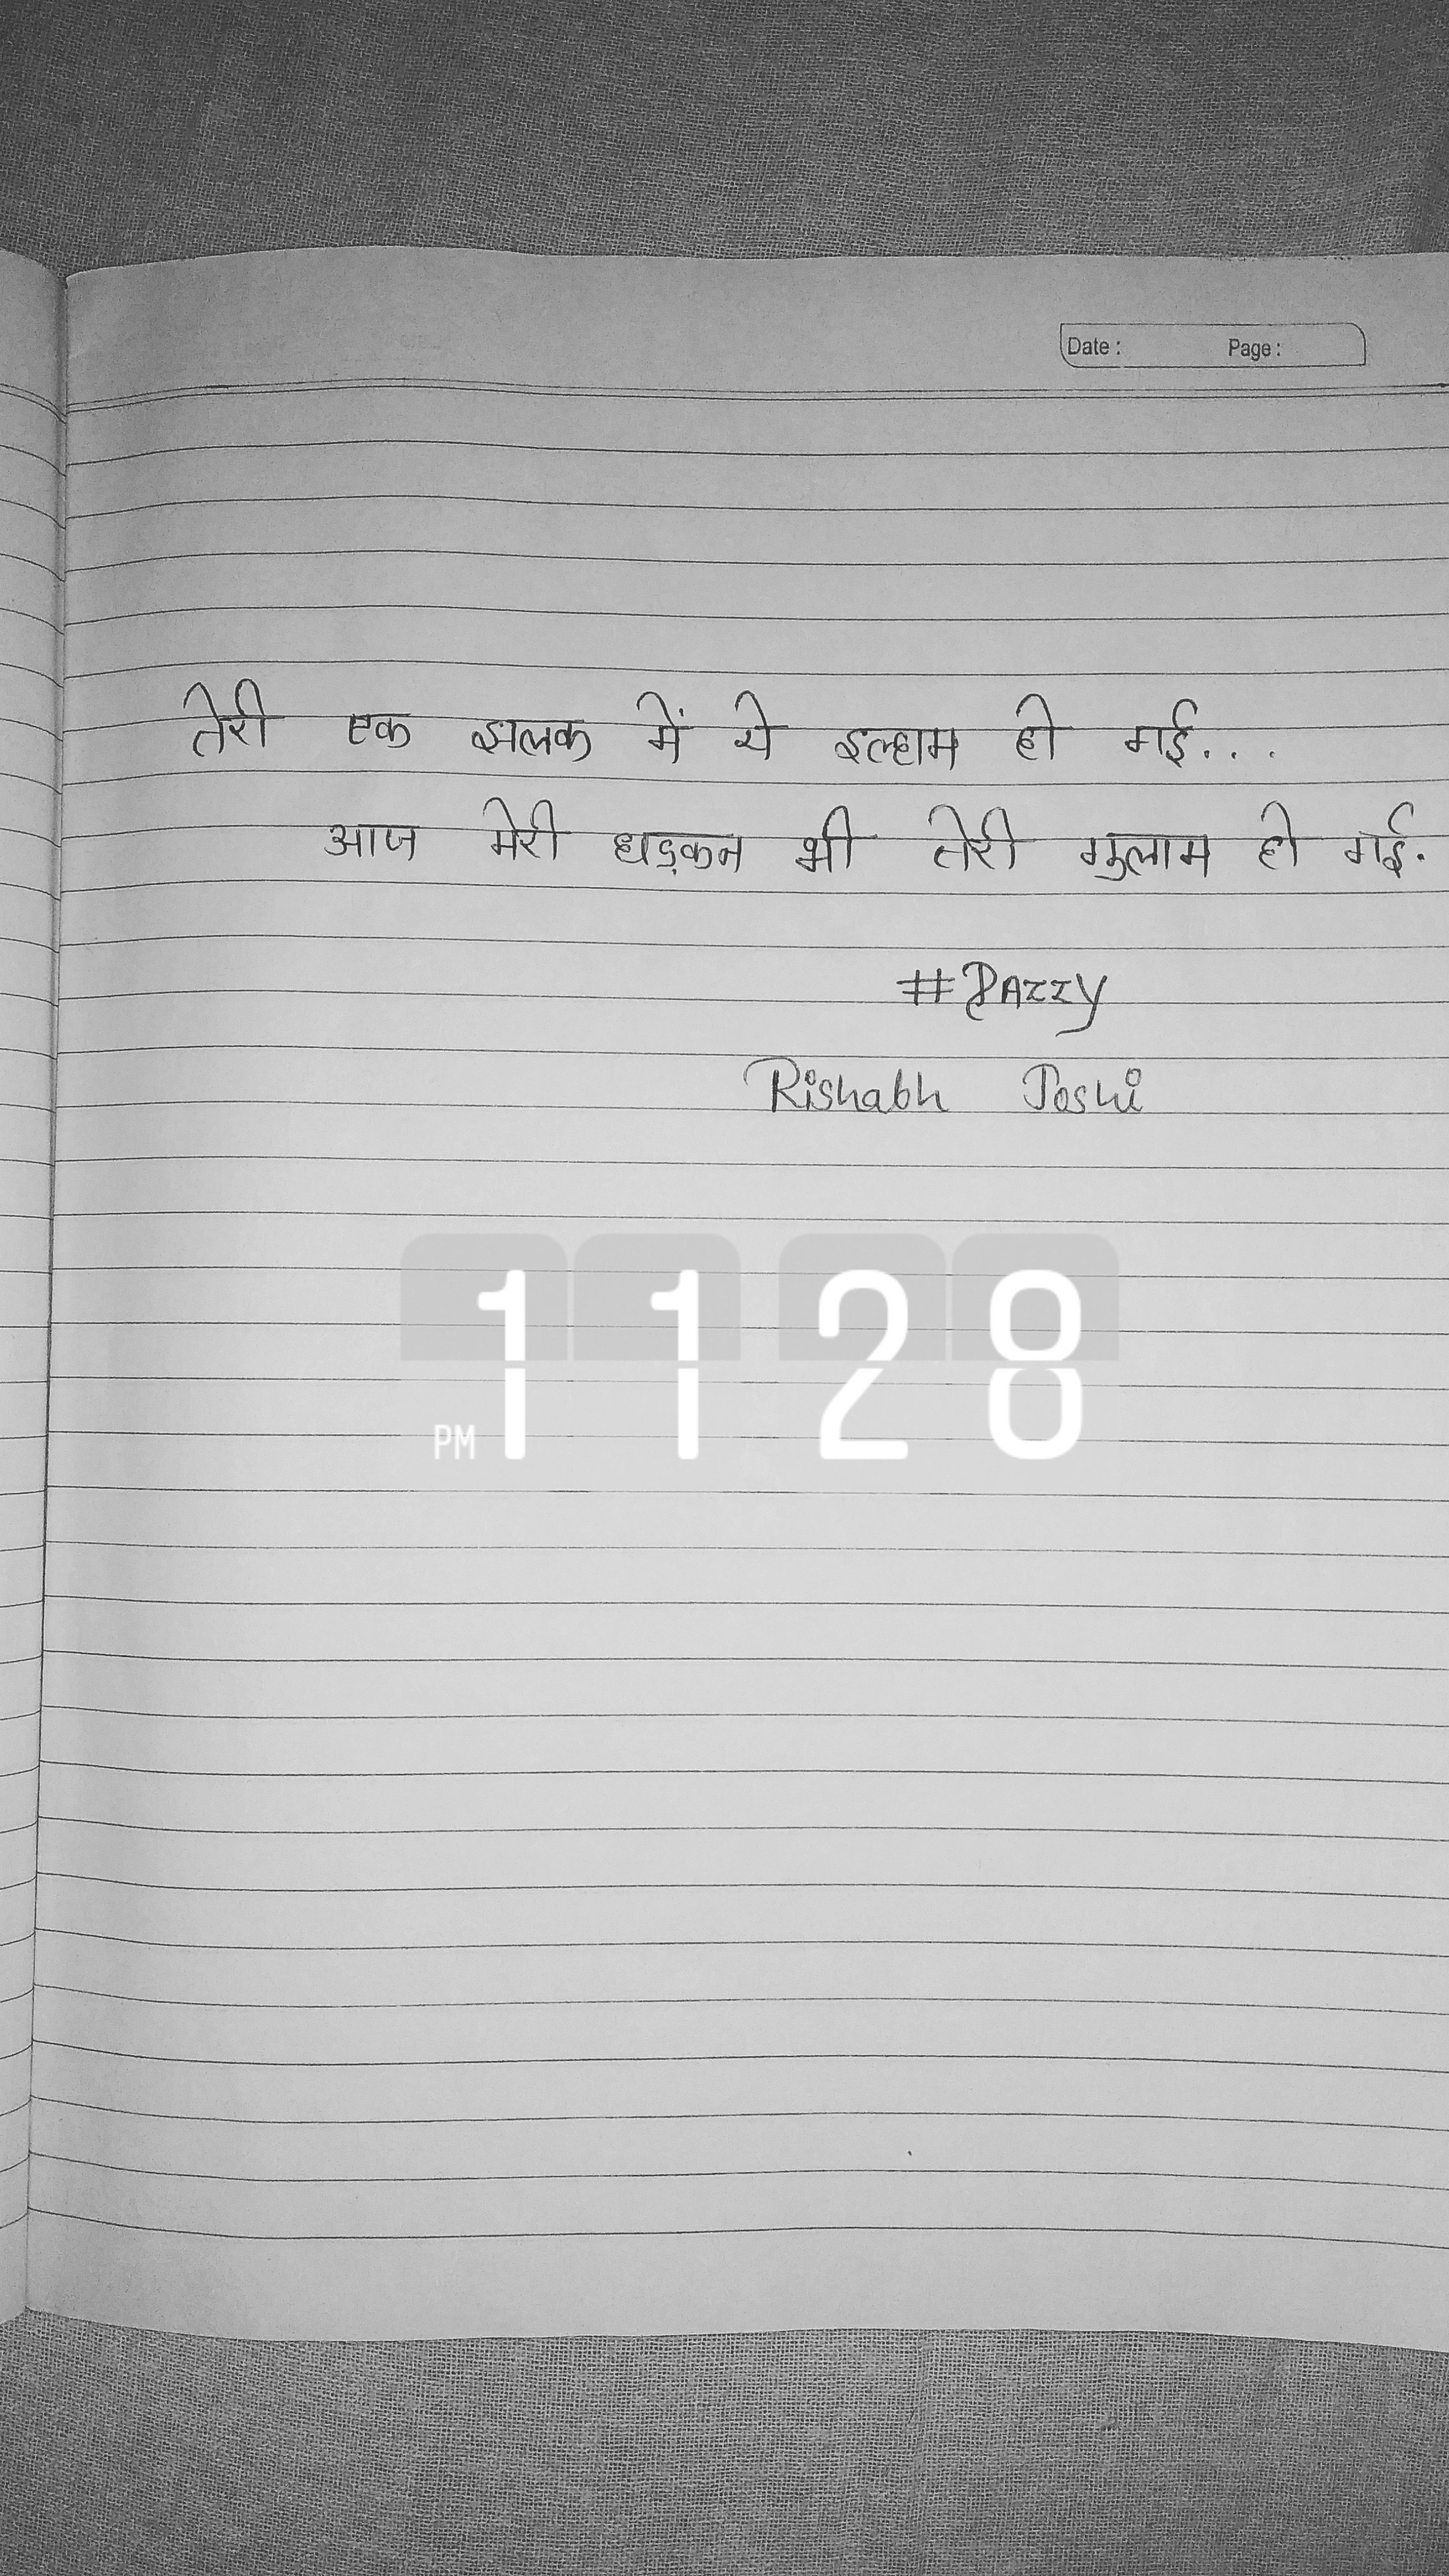 Date : Page :
तेरी एक झलक में ये इल्हाम हो गई...
आज मेरी धड़कन भी तेरी गुलाम हो गई.
#PAZZY
Rishabh Joshi
PM 11 28